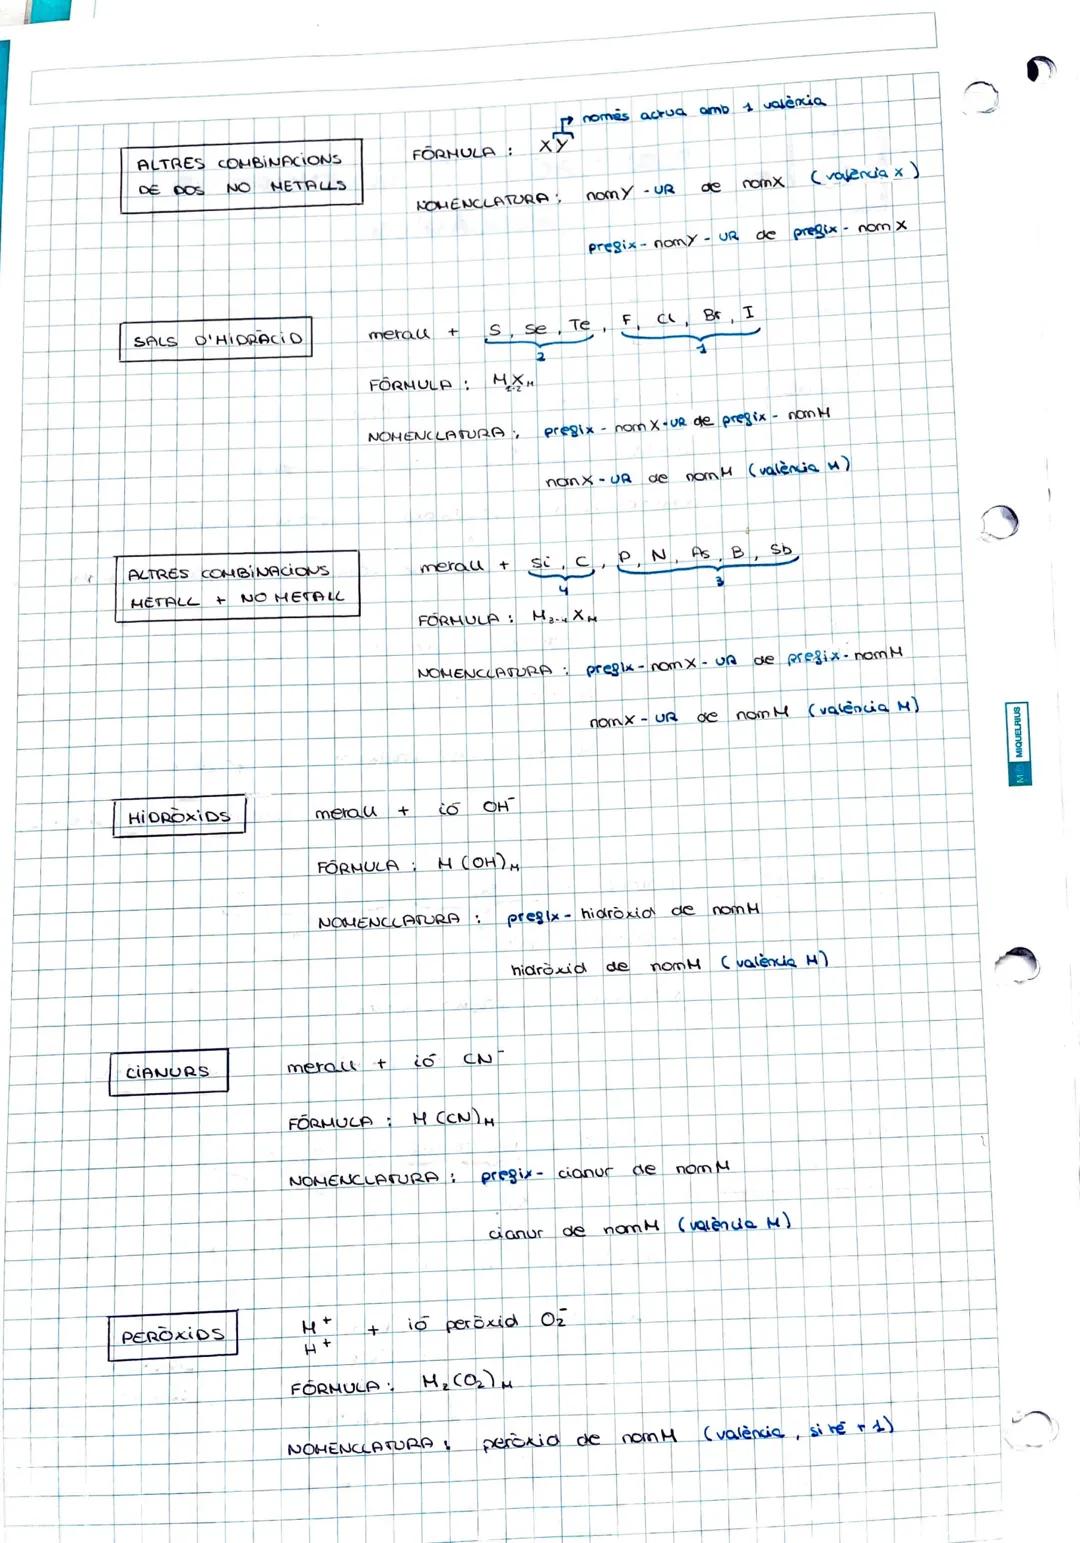 només actua amb 1 valència
ALTRES COMBINACIONS
DE DOS NO METALLS
FÓRMULA : XY
NOMENCLATURA : nomY - UR de nomX (valència X)
prefix - nomY - UR de prefix - nomX
SALS D'HIDRÀCID
metall + S, Se, Te, F, Cl, Br, I
2 1
FÓRMULA : M₁₋₂Xₘ
NOMENCLATURA : prefix - nomX - UR de prefix - nomM
nomX - UR de nomM (valència M)
ALTRES COMBINACIONS
METALL + NO METALL
metall + Si, C, P, N, As, B, Sb
4 3
FÓRMULA : M₃₋₄Xₘ
NOMENCLATURA : prefix - nomX - UR de prefix - nomM
nomX - UR de nomM (valència M)
M.R MIQUELRIUS
HIDRÒXIDS
metall + ió OH⁻
FÓRMULA : M(OH)ₘ
NOMENCLATURA : prefix - hidròxid de nomM
hidròxid de nomM (valència M)
CIANURS
metall + ió CN⁻
FÓRMULA : M(CN)ₘ
NOMENCLATURA : prefix - cianur de nomM
cianur de nomM (valència M)
PERÒXIDS
M⁺
H⁺
+ ió peròxid O₂⁻
FÓRMULA : M₂(O₂)ₘ
NOMENCLATURA : peròxid de nomM (valència, si té + 1)